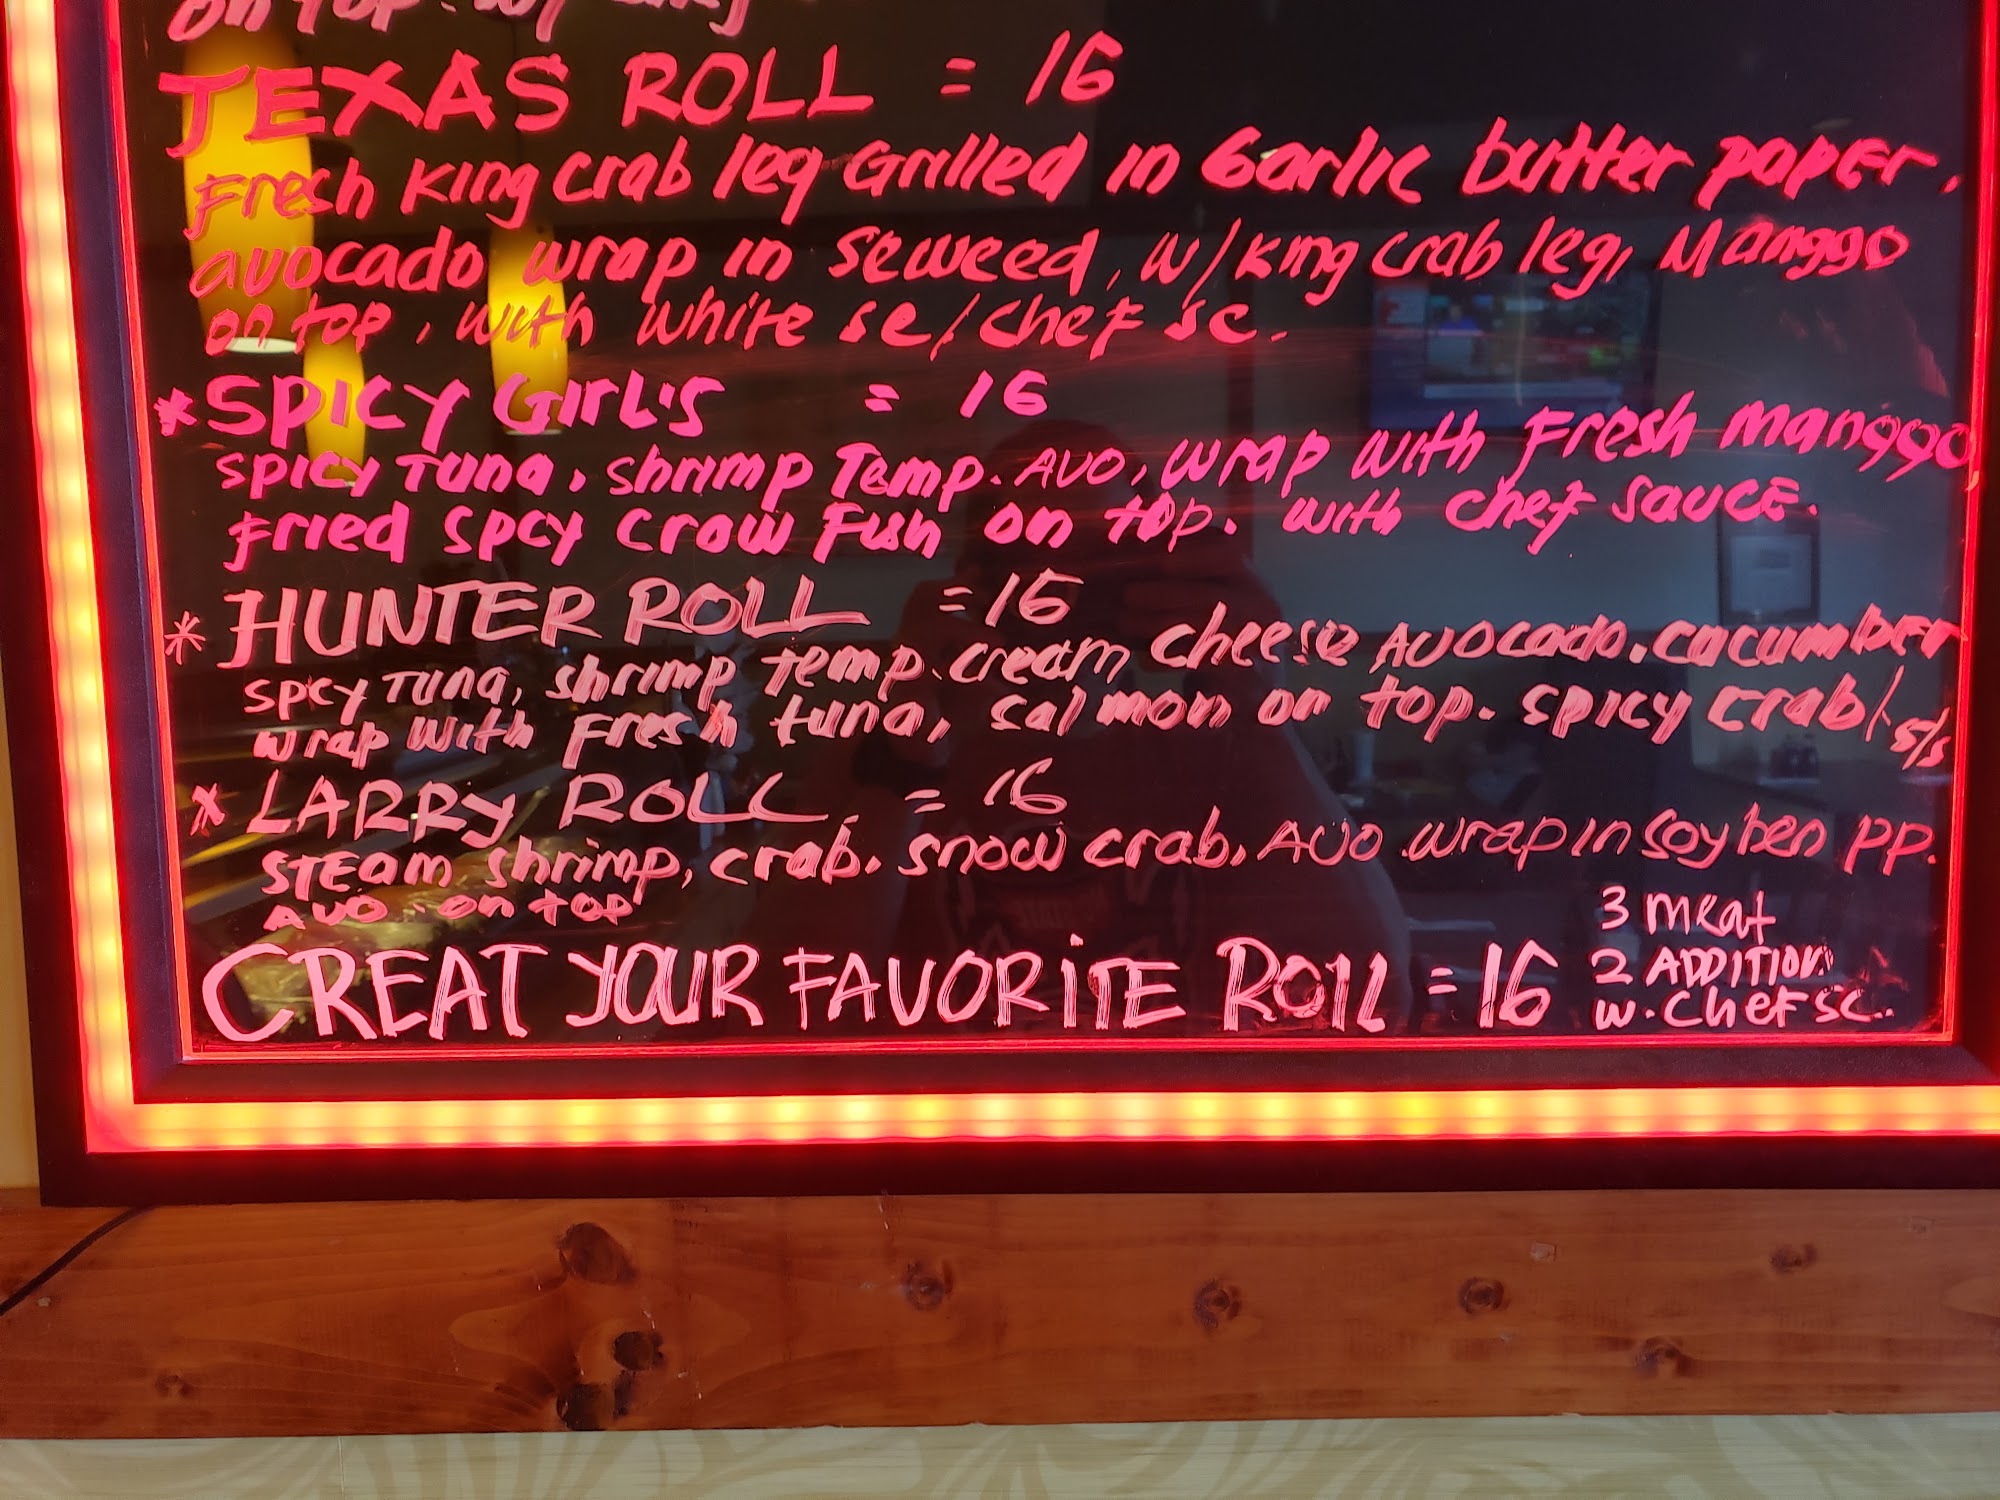 on top. w/
TEXAS ROLL = 16
Fresh King crab leg Grilled in Garlic butter paper.
avocado wrap in seweed, w/ King crab leg, Manggo
on top, with white sc/chef sc.
*SPICY GIrL'S = 16
SPICY Tuna, shrimp Temp. AVO, wrap with Fresh manggo
Fried spcy craw Fish on top. with chef sauce.
* HUNTER ROLL = 16
spcy Tuna, shrimp temp. cream cheese Avocado. cucumber
wrap with Fresh tuna, salmon on top. spicy crab/s/s
* LARRy ROLL = 16
STEam shrimp, crab, snow crab, AVO wrap in soy ben pp.
AVO on top
CREAT YOUR FAVORiTE ROLL = 16
3 meat
2 ADDITION
w. chef sc..